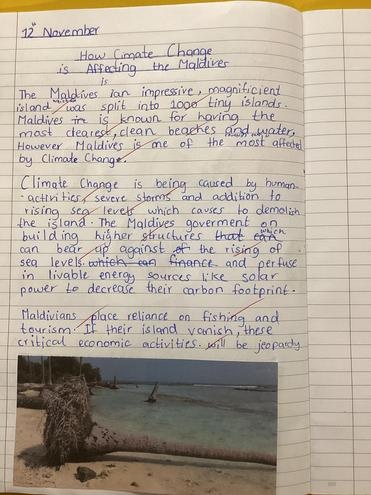 12th November
How Cimate Change
is Affecting the Maldives
is
The Maldives ian impressive, magnificient
island which was split into 1000 tiny islands.
Maldives in is known for having the
most clearest, clean beaches and water,
However Maldives is one of the most affected
by Climate Change.
Climate Change is being caused by human-
activities, severe storms and addition to
rising sea levels which causes to demolish
the island. The Maldives goverment on
building higher structures that can which
can bear up against of the rising of
sea levels which can finance and perfuse
in livable energy sources like solar
power to decrease their carbon footprint.
Maldivians place reliance on fishing and
tourism. If their island vanish, these
critical economic activities. will be jeopardy